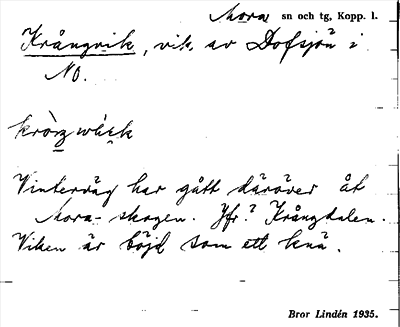 Mora sn och tg, Kopp. l.
Krångvik, vik av Dofsjön i
NO.
Vinterväg har gått däröver åt
Mora-skogen. Jfr? Krångdalen.
Viken är böjd som ett knä.
Bror Lindén 1935.